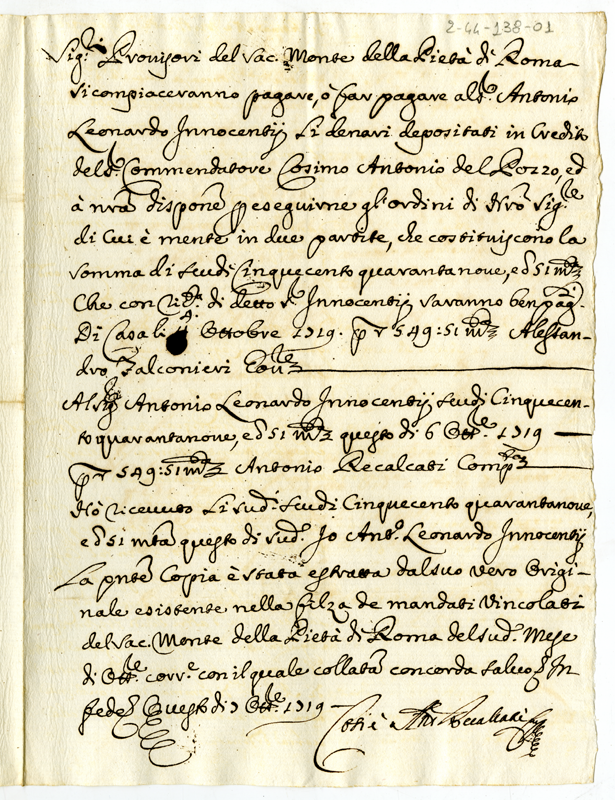 2-44-138-01
Sig.ri Provisori del Sac. Monte della Pietà di Roma
Si compiaceranno pagare, ò far pagare al S.r Antonio
Leonardo Innocentij li denari depositati in Credito
del S.r Commendatore Cosimo Antonio del Pozzo, ed
à nrã dispone p eseguirne gl'ordini di Nrõ Sig.re
di cui è mente in due partite, che costituiscono la
somma di scudi Cinquecento quarantanove, e d 51 mta
Che con Ric.ta di detto S.r Innocentij saranno ben pag.
Di Casa li 4 4. Ottobre 1719. p ∇ 549:51 mta Alessan-
dro Falconieri
Al Sig.r Antonio Leonardo Innocentij scudi Cinquecen-
to quarantanove, e d 51 mta questo dì 6 Ott.re 1719
p ∇ 549:51 mta Antonio Recalcati Comp.ta
Hò ricevuto li sud.i scudi Cinquecento quarantanove,
e d 51 mta questo dì sud.o Io Ant.o Leonardo Innocentij
La pnte Copia è stata estratta dal suo vero Origi-
nale esistente nella filza de mandati Vincolati
del Sac. Monte della Pietà di Roma del sud.o Mese
di Ott.re corr.e con il quale collata concorda salvo &. In
fede &. Questo dì 7 Ott.re 1719
Così è Ant.o Recalcati